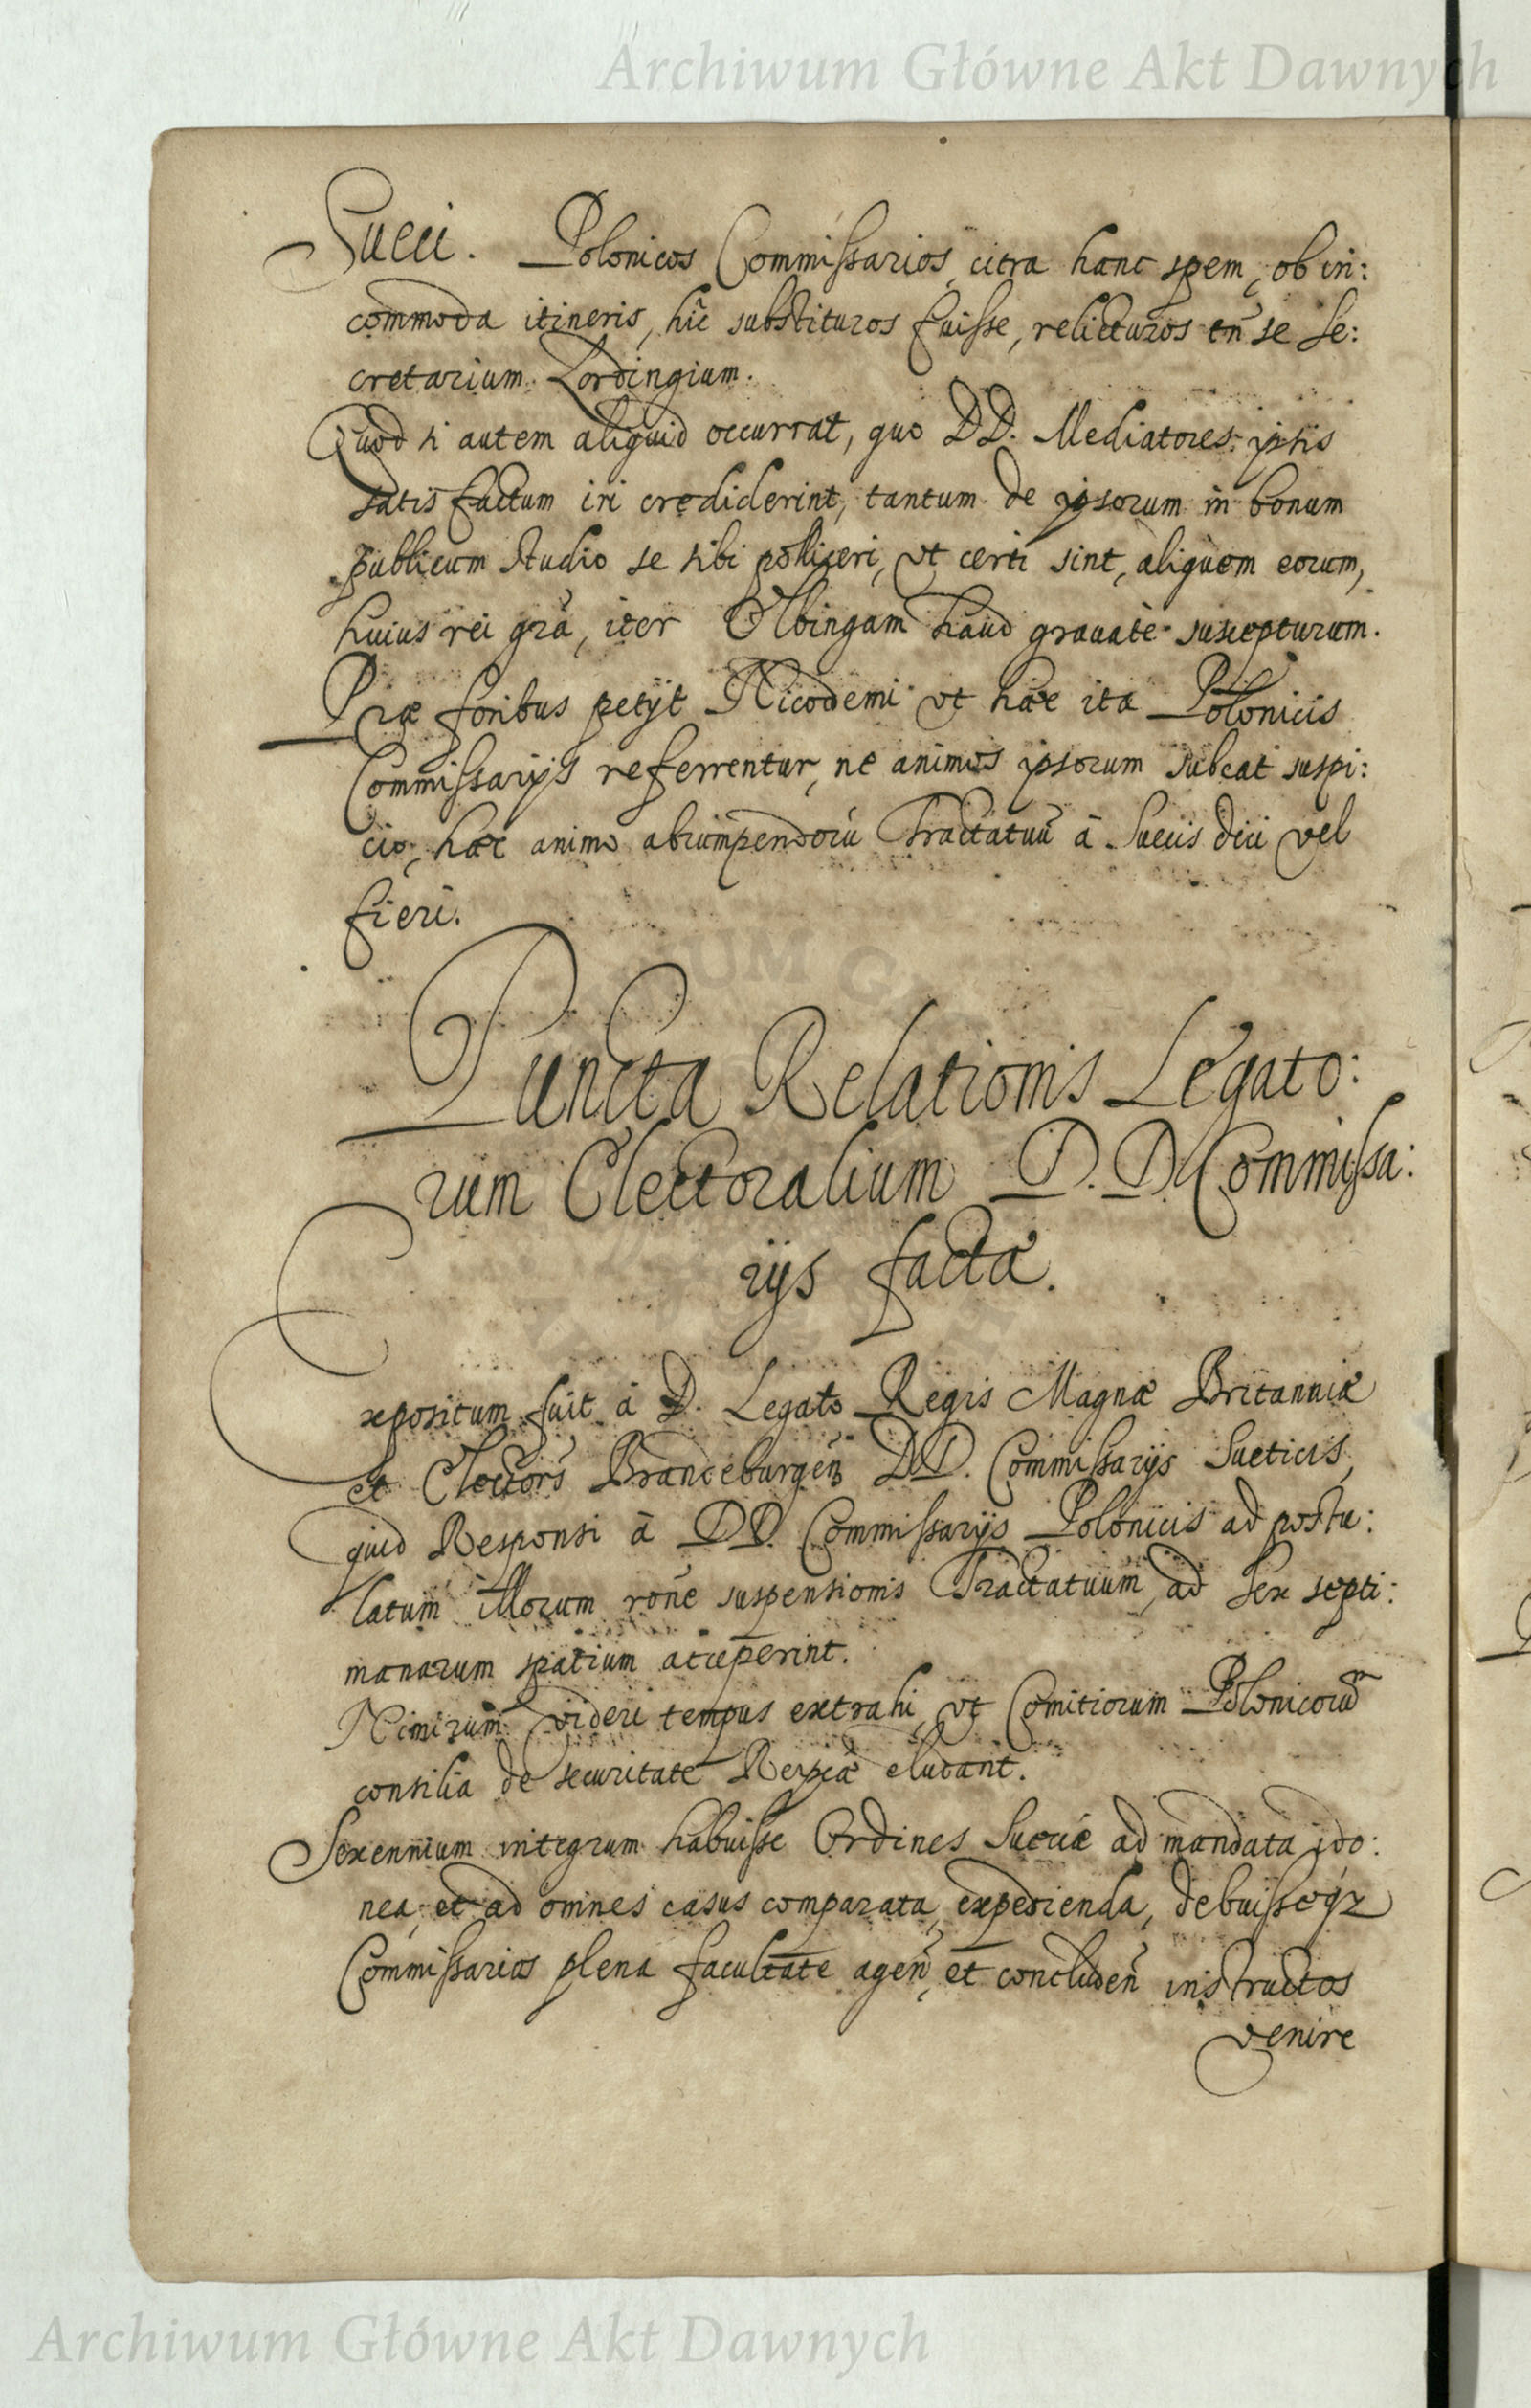 Archiwum Główne Akt Dawnych
Sueci. Polonicos Commissarios, citra hanc spem, ob in:
commoda itineris, hic substituros fuisse, relicturos tñ se Se:
cretarium Lordingium.
Quod si autem aliquid occurrat, quo DD. Mediatores ipsis
satis factum iri crediderint, tantum de ipsorum in bonum
publicum studio se sibi polliceri, vt certi sint, aliquem eorum,
huius rei grã, iter Elbingam haud grauatè suscepturum.
Præ foribus petijt Nicodemi vt hæc ita Polonicis
Commissarijs referrentur, ne animos ipsorum subeat suspi:
cio, hæc animo abrumpendorũ Tractatuũ à Suecis dici vel
fieri.
Puncta Relationis Legato:
rum Electoralium D. D. Commissa:
rijs facta.
Expositum fuit à D. Legato Regis Magnæ Britanniæ
et Electoris Brandeburgeñ DD. Commissarijs Sueticis,
quid Responsi à DD. Commissarijs Polonicis ad postu:
latum illorum rõne suspensionis Tractatuum, ad sex septi:
manarum spatium acceperint.
Nimirum videri tempus extrahi, vt Comitiorum Polonicorũ
consilia de securitate Reipcæ eludant.
Sexennium integrum habuisse Ordines Sueciæ ad mandata ido:
nea, et ad omnes casus comparata, expedienda, debuisseqз
Commissarios plena facultate ageñ, et concludeñ instructos
venire
Archiwum Główne Akt Dawnych